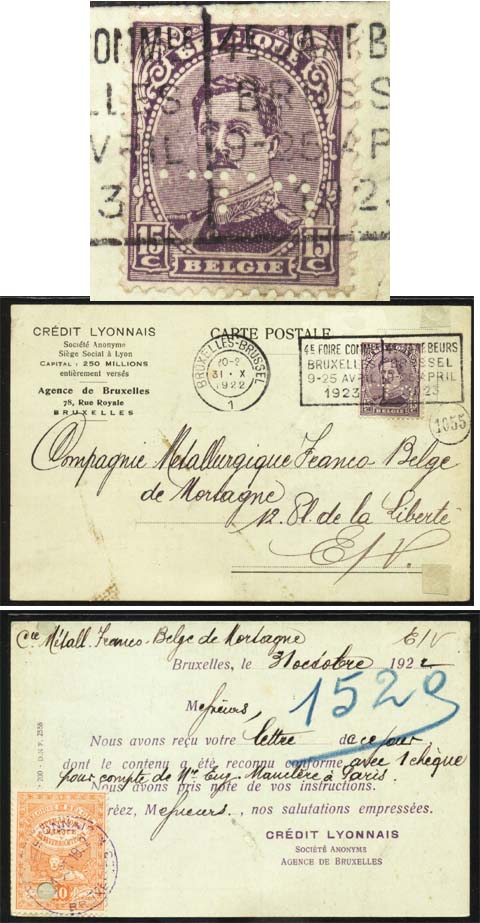 COMMle 4E JAARB
BELGIQUE
LLES BR SS
VRIL 9-25 AP
3 1923
15 C 15 C
BELGIE
CRÉDIT LYONNAIS
Société Anonyme
Siège Social à Lyon
CAPITAL : 250 MILLIONS
entièrement versés
Agence de Bruxelles
78, Rue Royale
BRUXELLES
CARTE POSTALE
BRUXELLES-BRUSSEL
31 · X
1922
1
4E FOIRE COMMle 4E JAARBEURS
BRUXELLES BRUSSEL
9-25 AVRIL APRIL
1923 1923
1055
Compagnie Métallurgique Franco-Belge
de Mortagne
12. Pl. de la Liberté
E/V.
Cie Métall. Franco-Belge de Mortagne E/V
Bruxelles, le 31 octobre 1922
1529
Messieurs,
Nous avons reçu votre lettre de ce jour
dont le contenu a été reconnu conforme avec 1 chèque
pour compte de Mr Eug. Mauclère à Paris.
Nous avons pris note de vos instructions.
Agréez, Messieurs, nos salutations empressées.
CRÉDIT LYONNAIS
SOCIÉTÉ ANONYME
AGENCE DE BRUXELLES